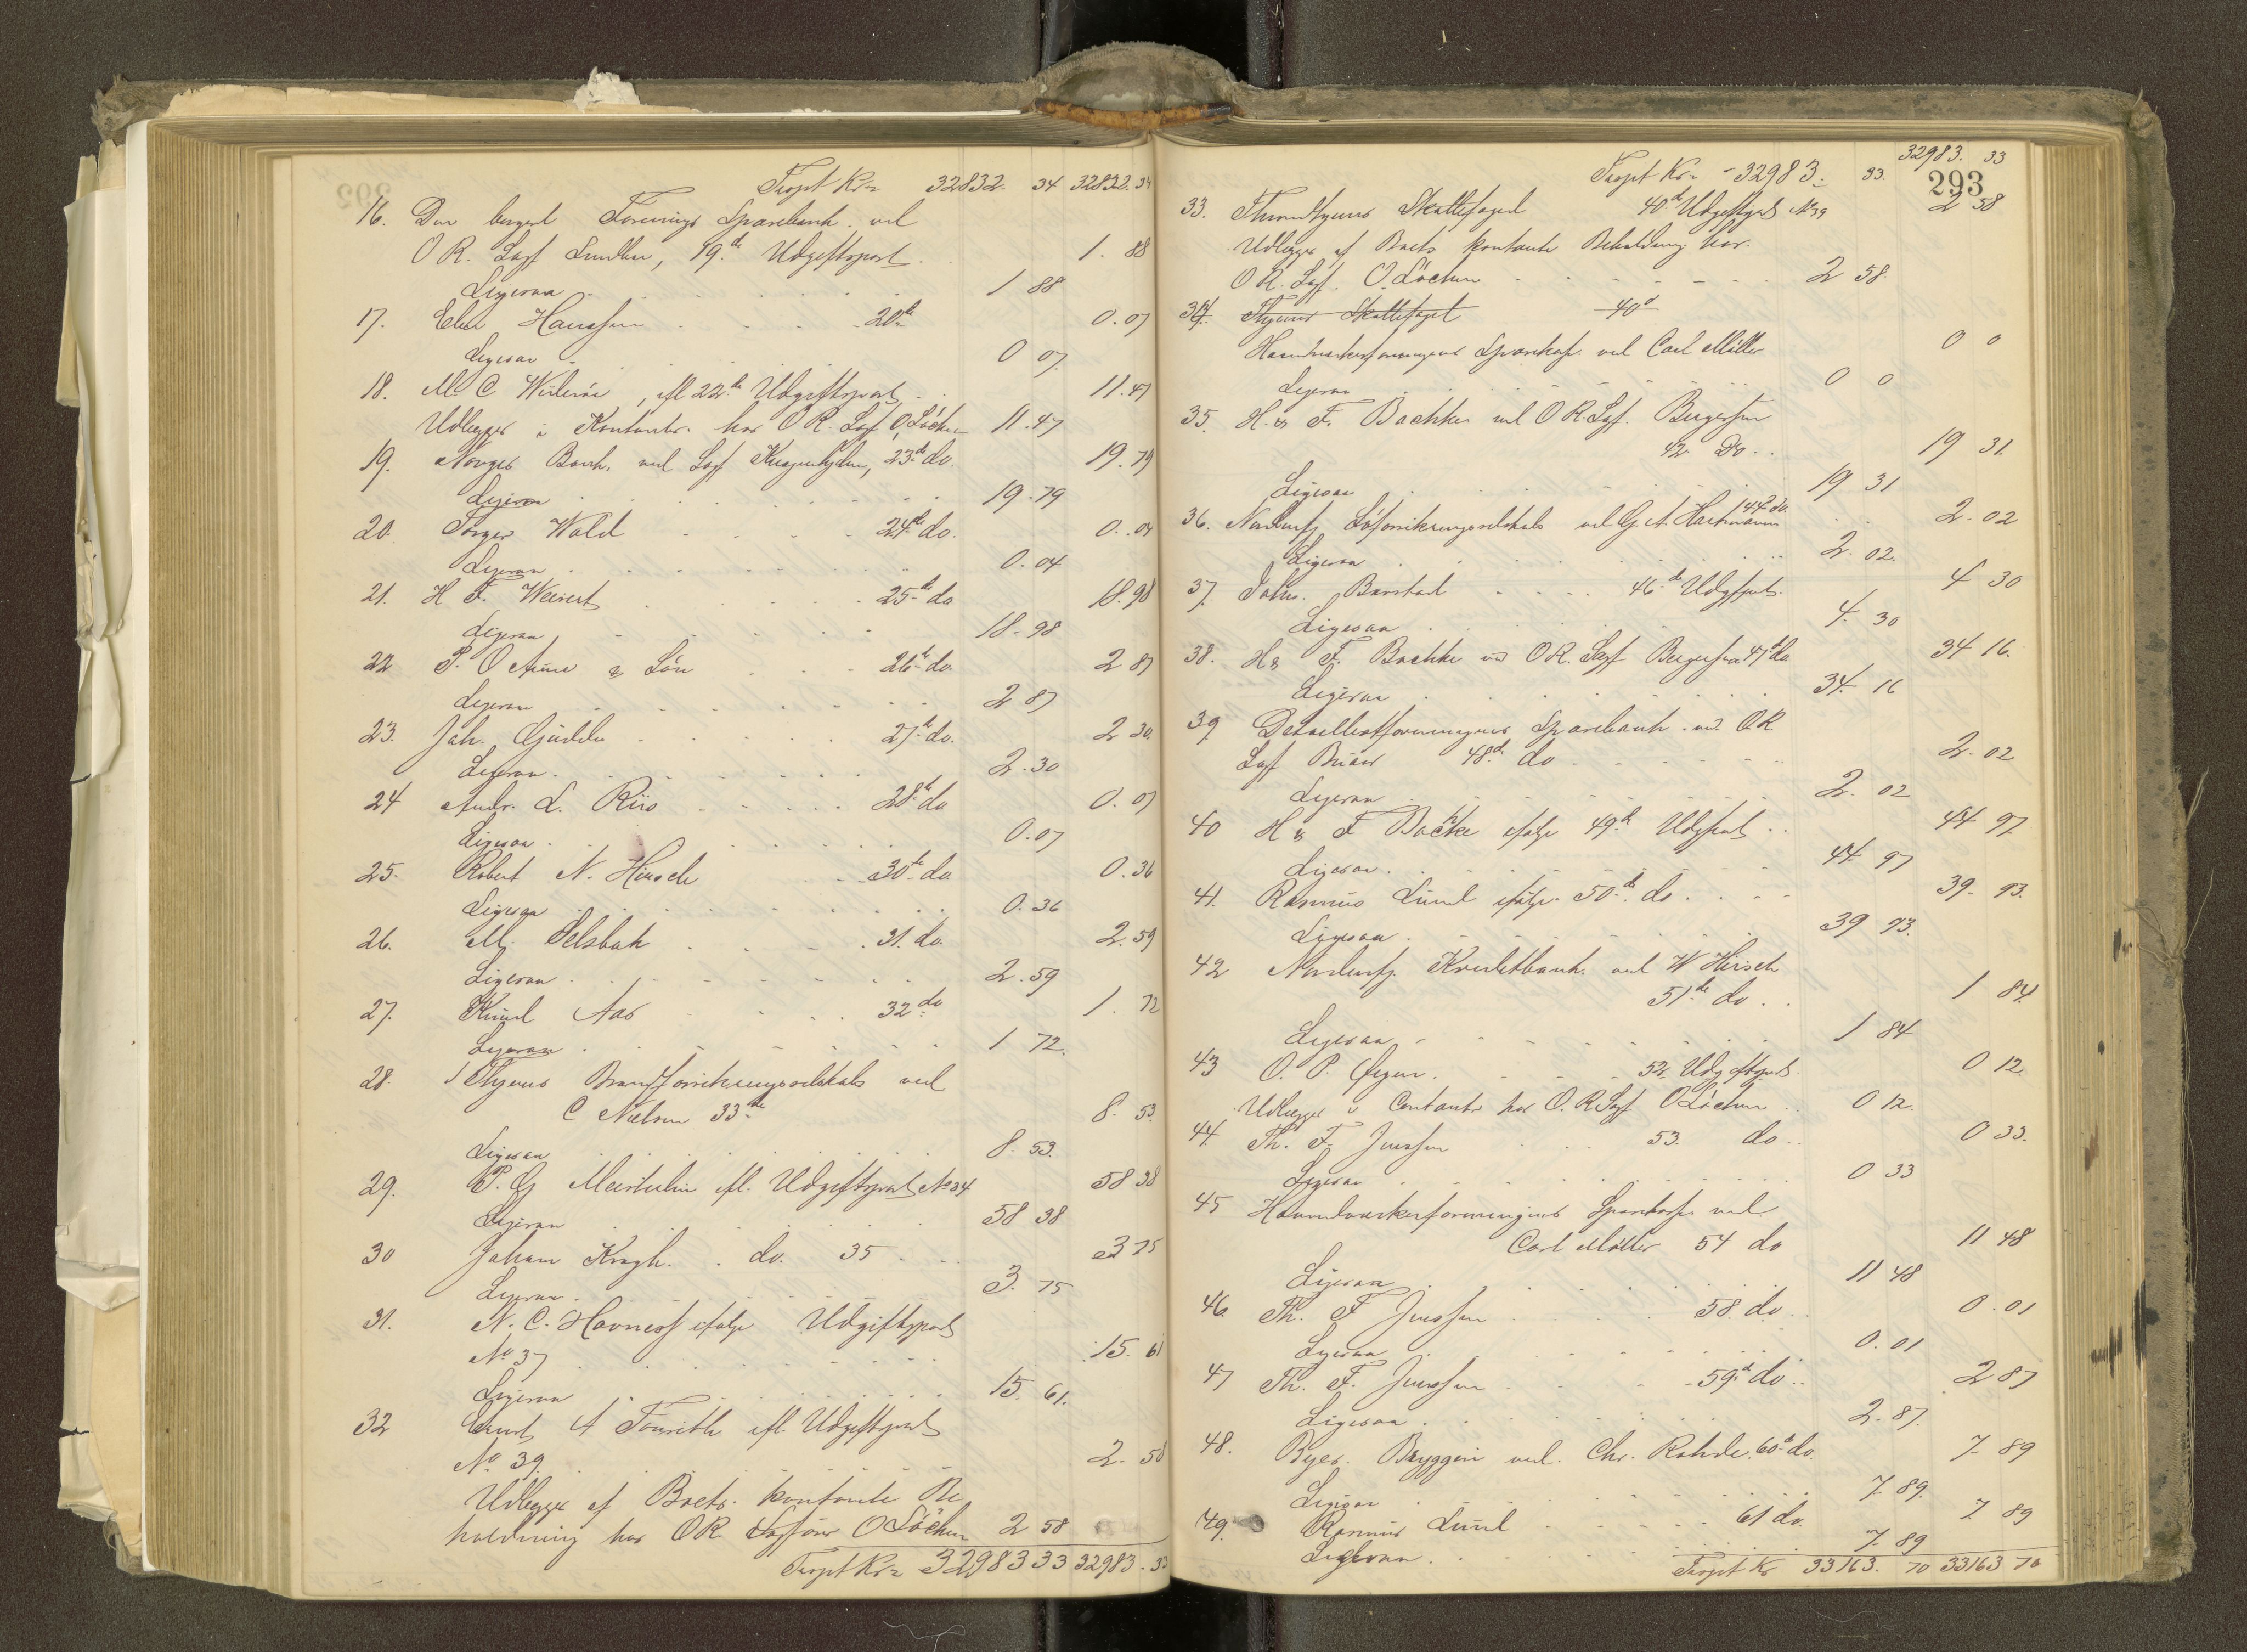 Trspt Kr= 32832. 34 32832. 34
16. Den borgerl Forenings Sparebank ved
O R. Sagf Lundber, 19.de Udgiftspost . . 1. 88
Ligesaa . . . 1 88
17. Elen Hanssen . . . 20de 0.07
Ligesaa . . . 0 07.
18. M. C , ifl 22de Udgiftspost . . 11.47
Udlegges i Kontanter hos O R. Sagf O Löchen 11.47
19. Norges Bank. ved Sagf , 23.de do. 19.79
Ligesaa . . . 19.79
20. Torger Wold . . . 24de do. 0.04
Ligesaa . . . 0.04
21. H F. Weivert . . . 25de do 18.98
Ligesaa . . . 18-98
22 P. O Aune & Sön . . . 26de do. 2 87
Ligesaa . . . 2 87
23. Joh. . . . 27de do. 2 30.
Ligesaa . . . 2.30
24 Andr. L. Riis . . . 28de do 0.07
Ligesaa . . . 0.07
25. Robert N. Hirsch 30te do 0.36
Ligesaa . . . 0.36
26. M. Selsbak . . . 31. do 2.59
Ligesaa . . . 2.59
27. Knud Aas . . . 32 do 1. 72
Ligesaa . . . 1 72.
28. Thjems Brandforsikringsselskab ved
C Nielsen 33de 8. 53.
Ligesaa . . . 8. 53.
29. P. G ifl. Udgiftspost No 34 58 38
Ligesaa . . . 58 38
30 Johan Kragh. . do. 35 . . 3 75
Ligesaa . . . 3. 75
31. N. C. Havness ifølge Udgiftspost
No 37 . . . 15. 61
Ligesaa . . . 15. 61.
32 A ifl Udgiftspost
No 39. . . . 2. 58
Udlegges af Boets. kontante Be
holdning hos O R. Sagfører O Löchen 2 58
Trspt Kr= 32983 33 32983. 33
32983. 33
Trspt Kr= 32983. 33.
293
33. Throndhjems Skattefoged 40de Udgiftspost No 39 2 58
Udlegges af Boets kontante Beholdning hos.
O R. Sagf. O. Löchen . . . 2 58.
34. Thjems Skattefoged 40d
Haandværkerforeningens Sparekasse ved Carl Möller 0 0
Ligesaa . . . 0 0
35. H. & F. Bachke ved O R. Sagf. Bergersen
42 Do . . 19 31.
Ligesaa . . . 19 31
36. Nordenfj. Söforsikringsselskab ved G A. Hartmann 44de do. 2. 02
Ligesaa . . . 2. 02.
37. Johs. Barstad . . . 46.de Udgiftspost. 4 30
Ligesaa . . . 4. 30
38. H & F. Bachke ved O R. Sagf Bergersen 47de do 34 16.
Ligesaa . . . 34. 16
39 Detaillistforeningens Sparebank. ved O R
Sagf 48de do . . . 2. 02
Ligesaa . . . 2. 02
40 H & F Backe ifølge 49de Udgpost . . 44 97.
Ligesaa . . . 44. 97
41. Rasmus Lund ifølge 50.de do . . . 39. 93.
Ligesaa . . . 39 93.
42 Nordenfj. Kreditbank. ved W Hirsch
51de do . . 1 84.
Ligesaa . . . 1 84
43 O. P. . . . 52 Udgiftspost. 0 12.
Udlegges i Contanter hos O. R Sagf O Löchen . . 0 12.
44. Th. F. Jenssen . . . 53. do . . 0 33.
Ligesaa . . . 0 33
45 Haandværkerforeningens Sparekasse ved
Carl Möller 54 do 11 48
Ligesaa . . . 11 48
46. Th. F Jenssen . . . 58. do . . 0.01
Ligesaa . . . 0.01
47 Th. F. Jenssen . . . 59de do . . 2 87
Ligesaa . . . 2. 87.
48. Byes. Bryggeri ved. Chr. Rohde. 60de do. 7 89
Ligesaa . . . 7 89.
49. Rasmus Lund . . . 61 do. 7 89
Ligesaa . . . 7. 89
Trspt Kr 33163. 70 33163 70